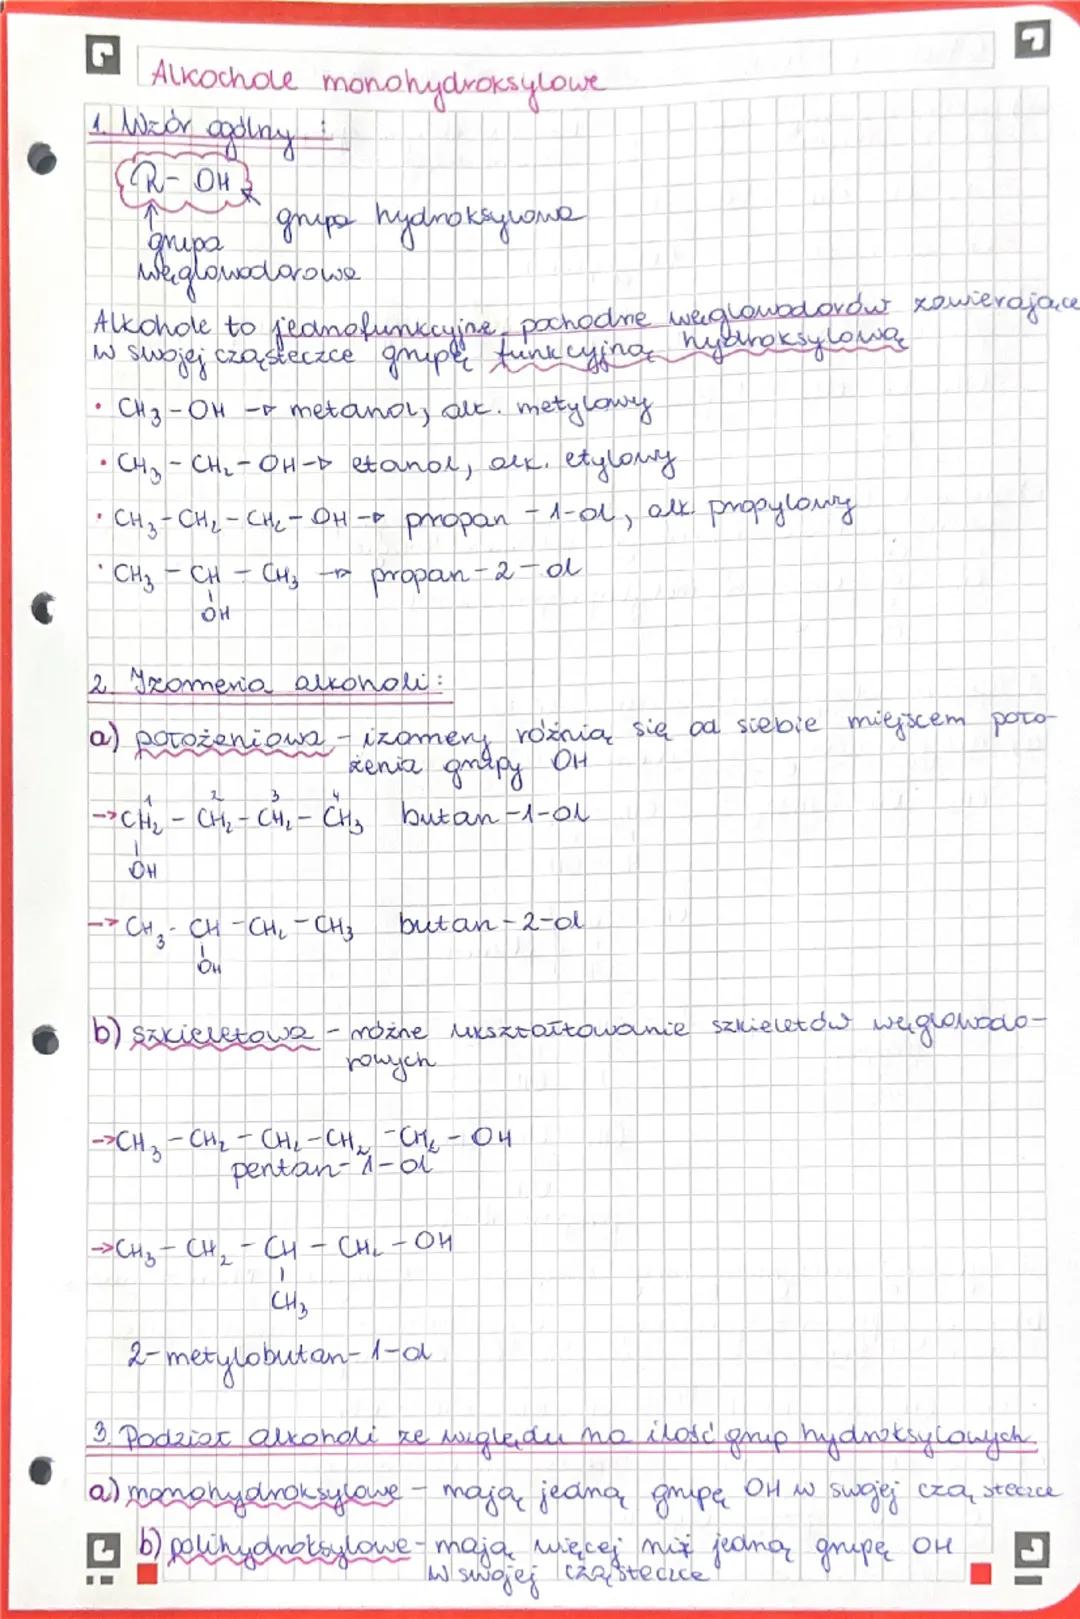 Alkochole monohydroksylowe
1. Wzór ogólny :
R - OH
grupa hydroksylowa
grupa
węglowodorowa
Alkohole to jednofunkcyjne pochodne węglowodorów zawierające
w swojej cząsteczce grupę funkcyjną hydroksylową
• CH3 - OH → metanol, alk. metylowy
• CH3 - CH2 - OH → etanol, alk. etylowy
• CH3 - CH2 - CH2 - OH → propan - 1-ol, alk. propylowy
• CH3 - CH - CH3 → propan-2-ol
OH
2. Izomeria alkoholi:
a) położeniowa - izomery różnią się od siebie miejscem poło-
żenia grupy OH
1 2 3 4
→ CH2 - CH2 - CH2 - CH3 butan-1-ol
OH
→ CH3 - CH - CH2 - CH3 butan-2-ol
OH
b) szkieletowa - różne ukształtowanie szkieletów węglowodo-
rowych
→ CH3 - CH2 - CH2 - CH2 - CH2 - OH
pentan-1-ol
→ CH3 - CH2 - CH - CH2 - OH
CH3
2-metylobutan-1-ol
3. Podział alkoholi ze względu na ilość grup hydroksylowych.
a) monohydroksylowe - mają jedną grupę OH w swojej cząsteczce
b) polihydroksylowe - mają więcej niż jedną grupę OH
w swojej cząsteczce